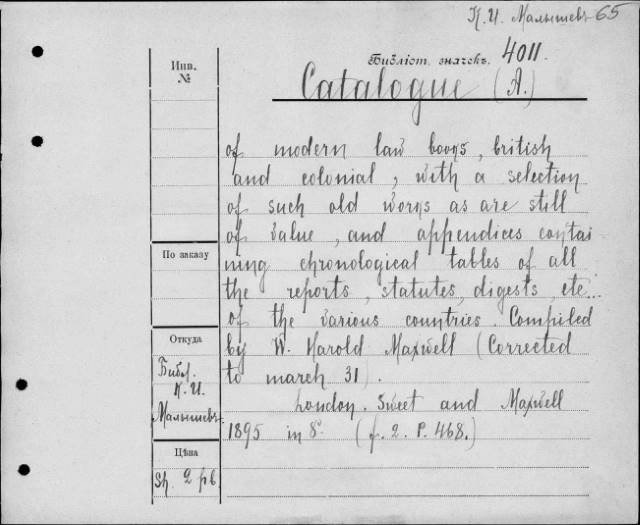 К. И. Малышевъ 65
Библіот. значекъ. 4011.
Инв.
№
Catalogue (A.)
of modern law books, british
and colonial, with a selection
of such old works as are still
of value, and appendices contai
ning chronological tables of all
the reports, statutes, digests, etc...
of the various countries. Compiled
by W. Harold Maxwell (Corrected
to march 31).
London. Sweet and Maxwell
1895 in 8° (f. 2. P. 468.)
По заказу
Откуда
Библ.
К. И.
Малышевъ
Цѣна
Sh. 2 рб